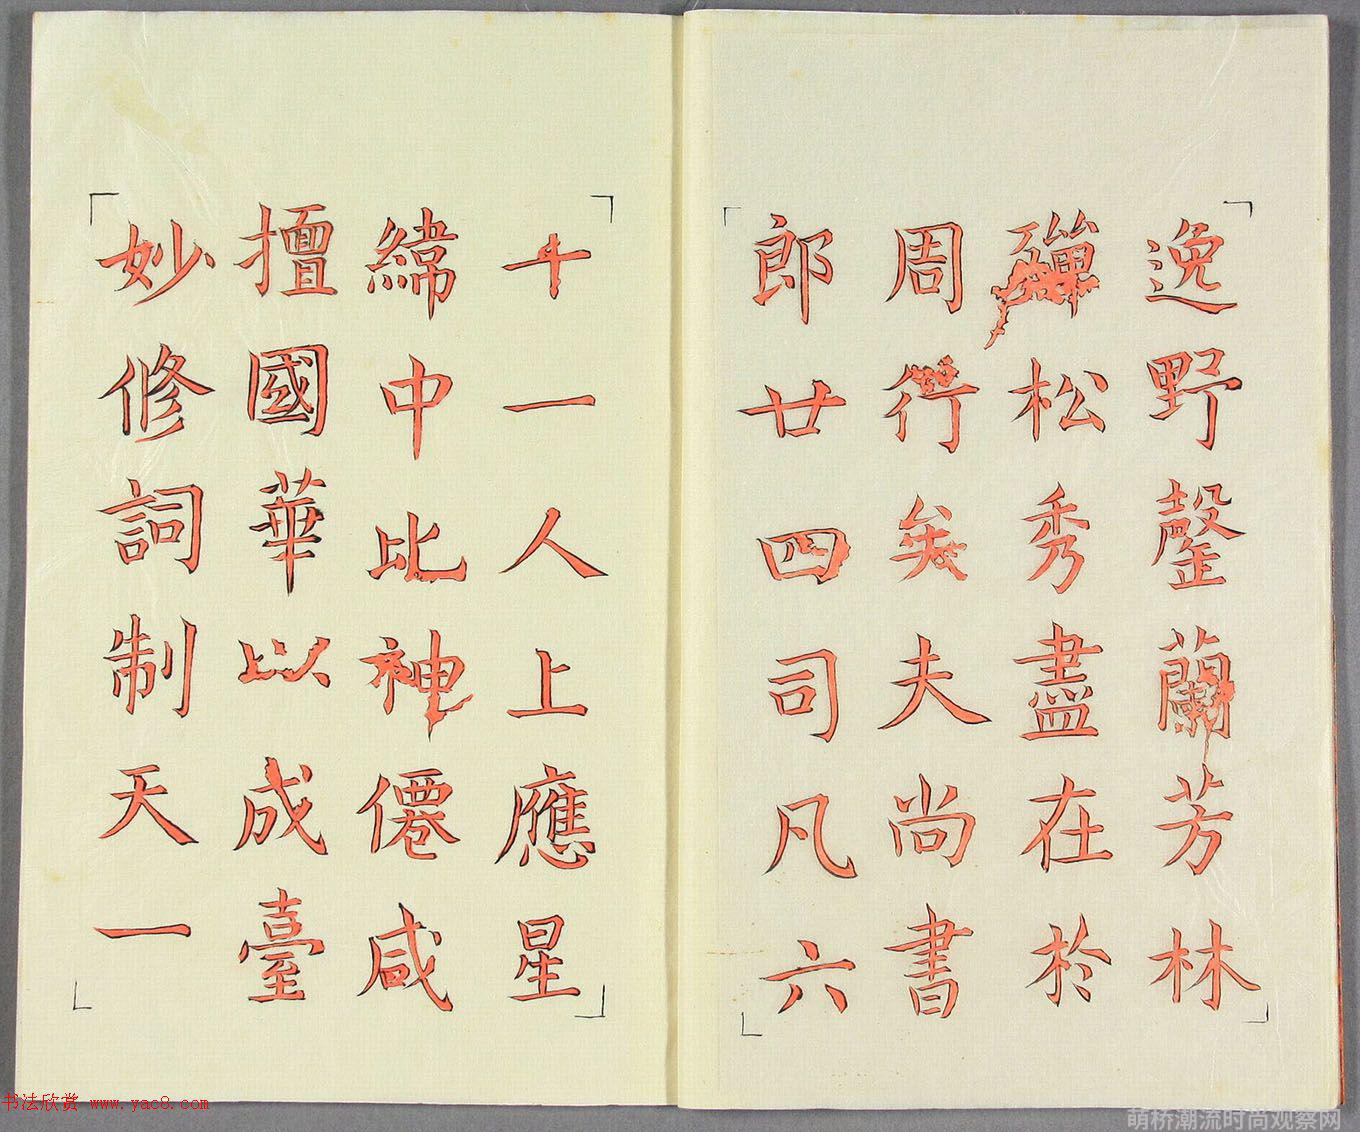 逸野罄蘭芳林
殫松秀盡在於
周行矣夫尚書
郎廿四司凡六
十一人上應星
緯中比神僊咸
擅國華以成臺
妙修詞制天一
书法欣赏 www.yac8.com
萌桥潮流时尚观察网